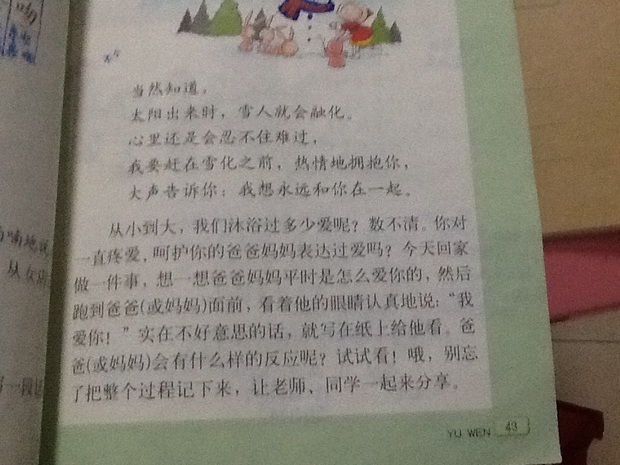 当然知道，
太阳出来时，雪人就会融化。
心里还是会忍不住难过，
我要赶在雪化之前，热情地拥抱你，
大声告诉你：我想永远和你在一起。
从小到大，我们沐浴过多少爱呢？数不清。你对
一直疼爱、呵护你的爸爸妈妈表达过爱吗？今天回家
做一件事，想一想爸爸妈妈平时是怎么爱你的，然后
跑到爸爸(或妈妈)面前，看着他的眼睛认真地说：“我
爱你！”实在不好意思的话，就写在纸上给他看。爸
爸(或妈妈)会有什么样的反应呢？试试看！哦，别忘
了把整个过程记下来，让老师、同学一起来分享。
YU WEN 43